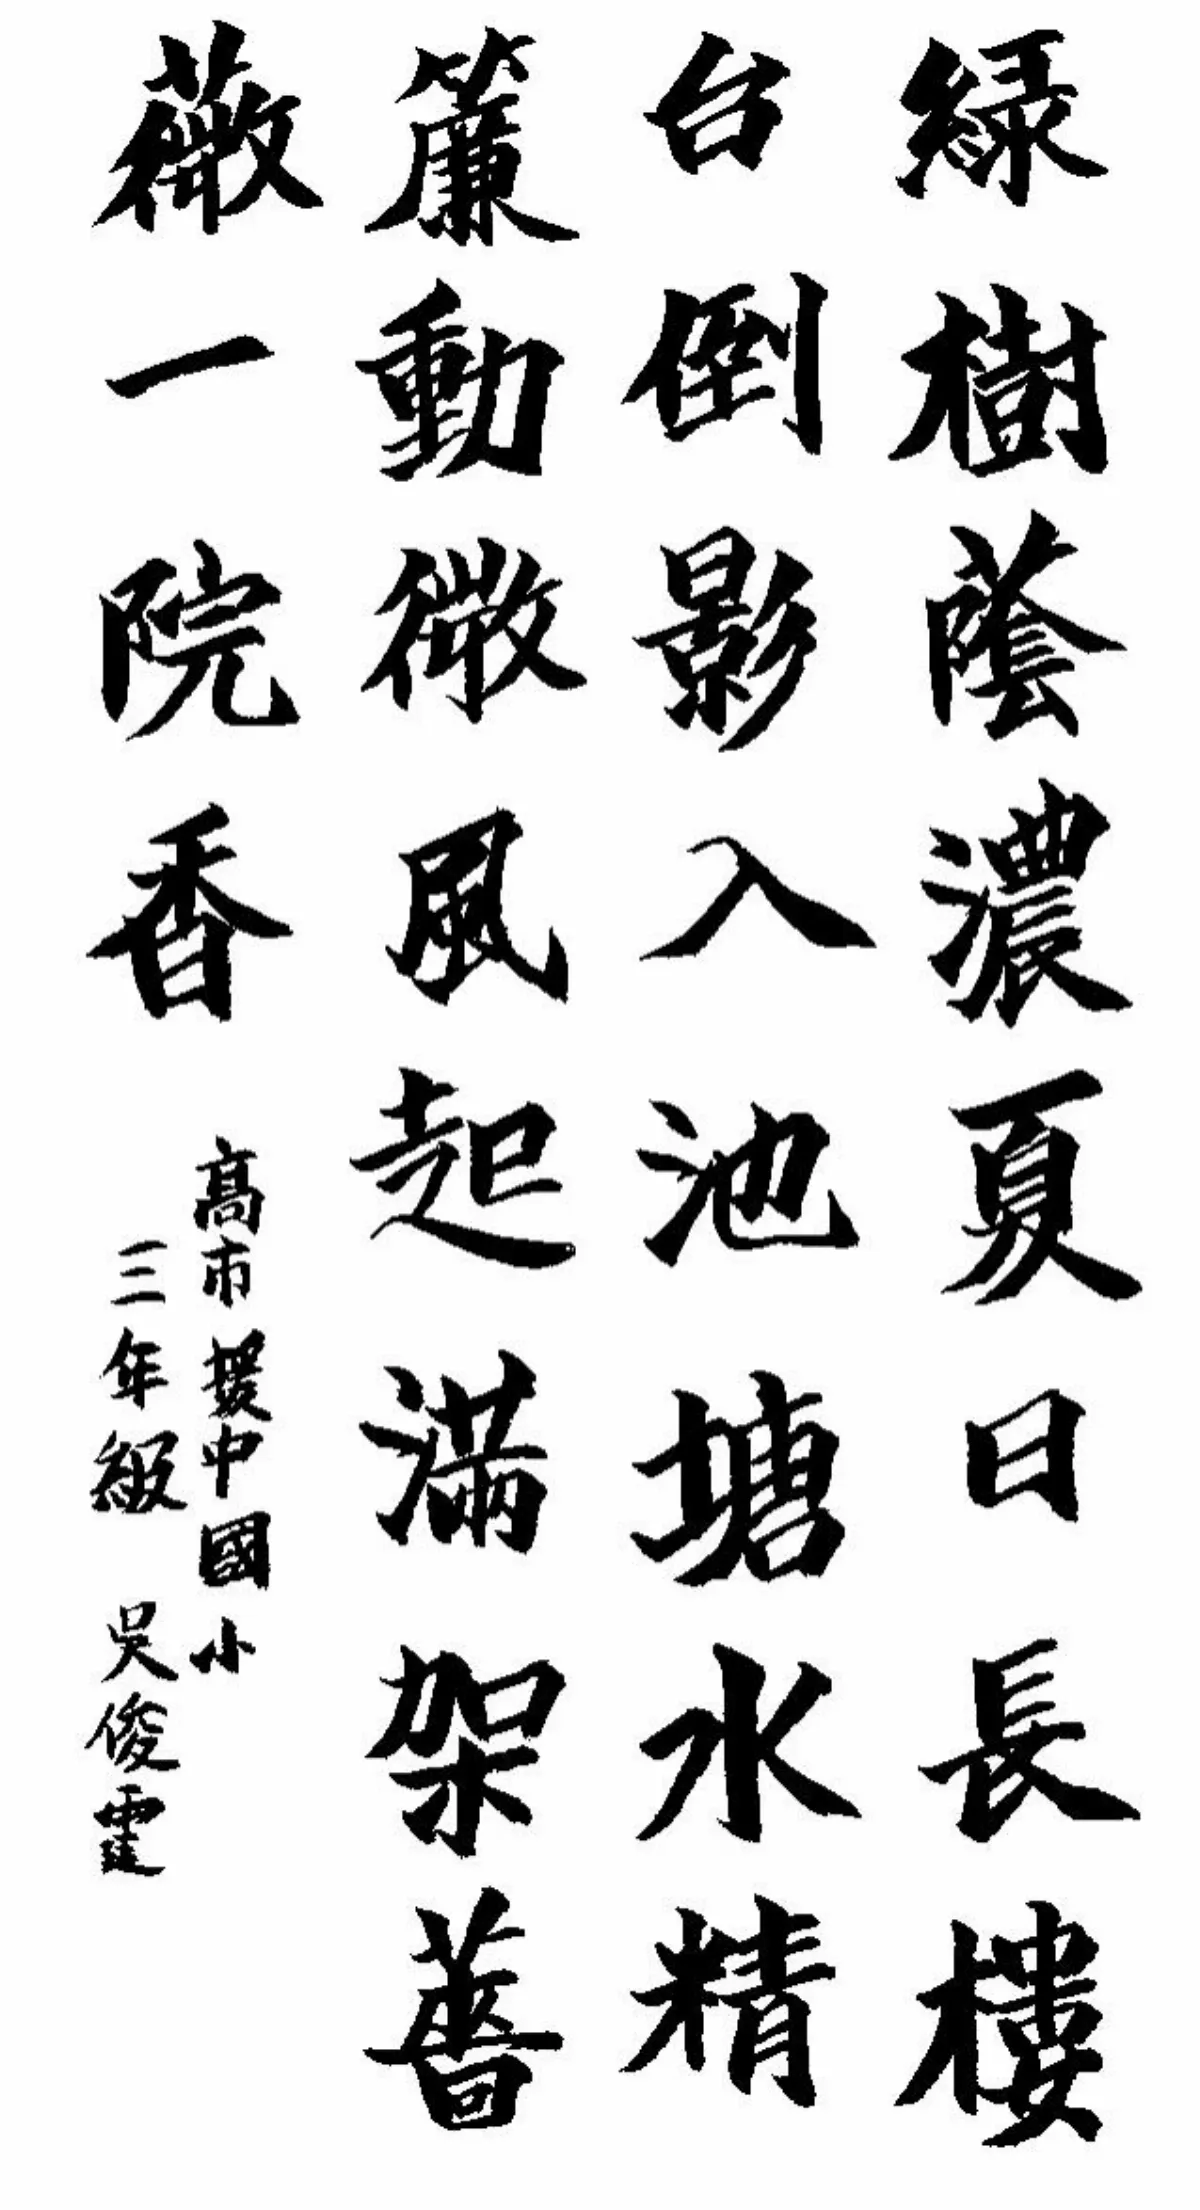 緑樹蔭濃夏日長樓
台倒影入池塘水精
簾動微風起滿架薔
薇一院香
高市援中國小
三年級 吳俊霆